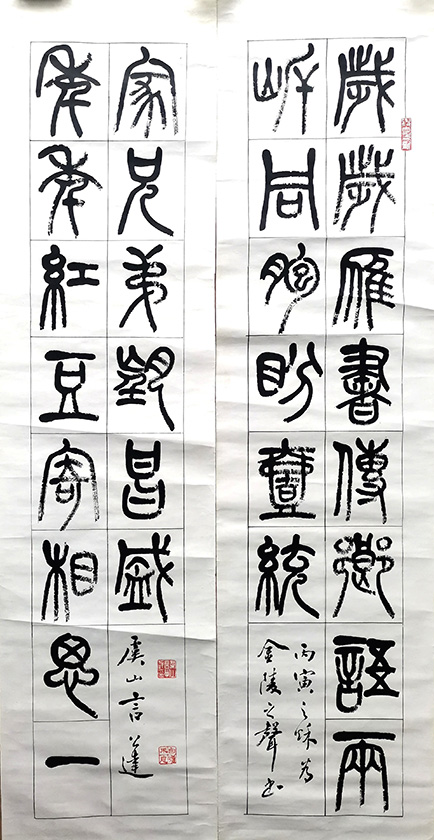 歲歲雁書傳鄉語兩
岸同胞盼壹統
丙寅之秋為
金陵之聲書
年年紅豆寄相思一
家兄弟望昌盛
虞山言公達